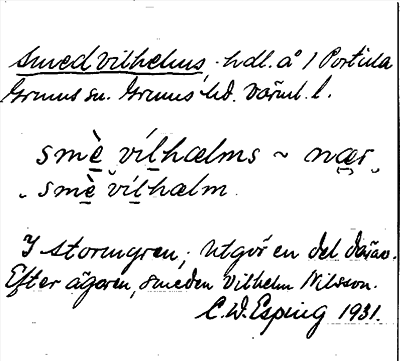 Smedvilhelms, hdl. å 1 Portila
Grums sn. Grums hd. Värml. l.
smè̱ víḻhælms ~ nær
smè̱ víḻhælm.
I Stormgren; utgör en del därav.
Efter ägaren, smeden Vilhelm Nilsson.
C.W. Esping 1931.